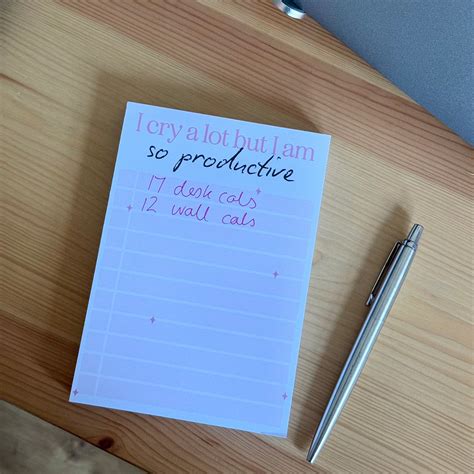 I cry a lot but I am
so productive
17 desk cals
12 wall cals